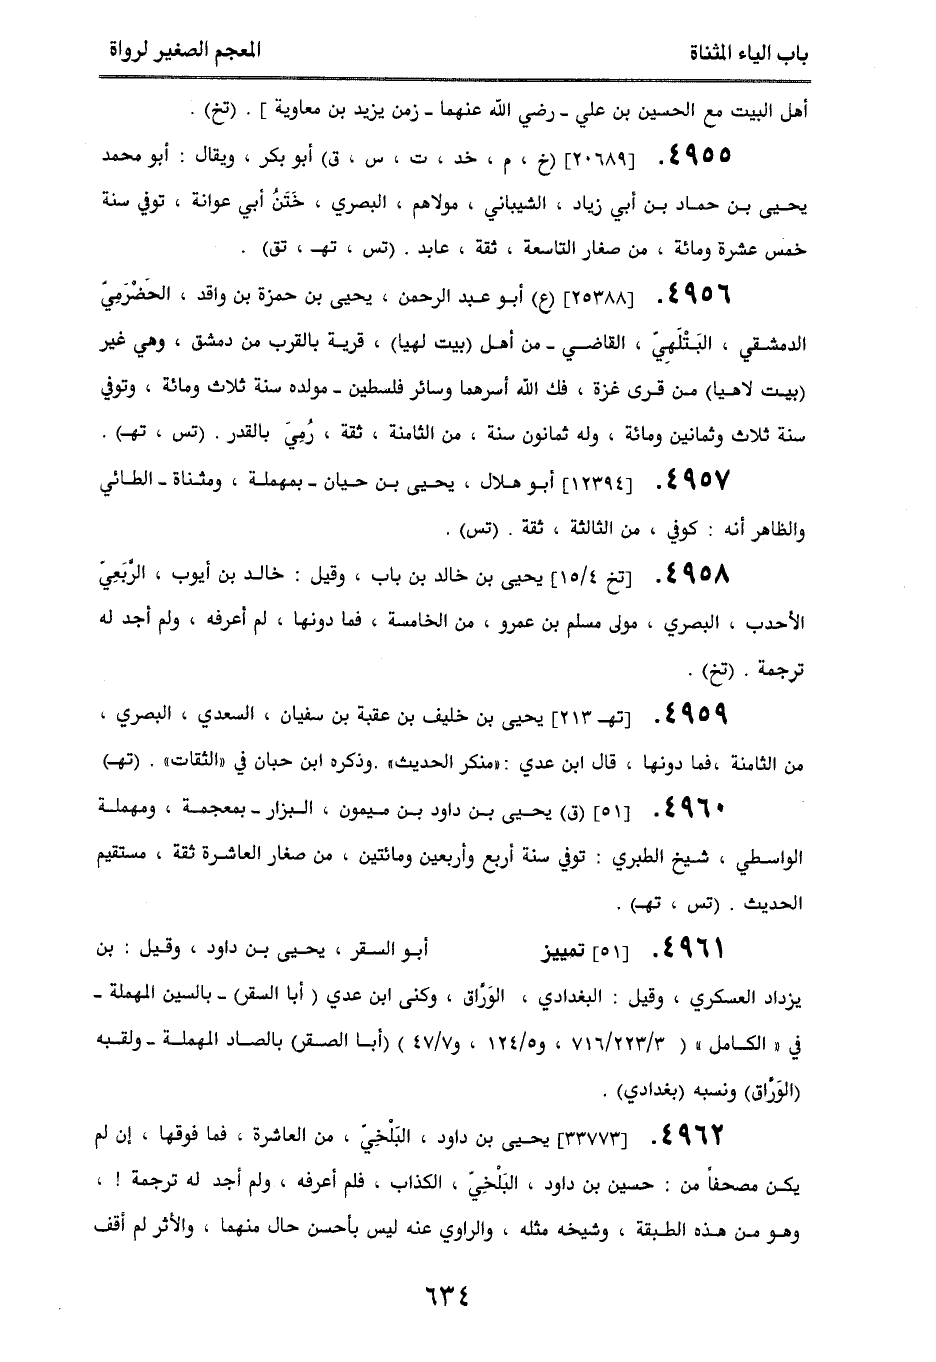 باب الياء المثناة
المعجم الصغير لرواة
أهل البيت مع الحسين بن علي ـ رضي الله عنهما ـ زمن يزيد بن معاوية ] . (تخ) .
٤٩٥٥. [٢٠٦٨٩] (خ ، م ، خد ، ت ، س ، ق) أبو بكر ، ويقال : أبو محمد
يحيى بن حماد بن أبي زياد ، الشيباني ، مولاهم ، البصري ، خَتَنُ أبي عوانة ، توفي سنة
خمس عشرة ومائة ، من صغار التاسعة ، ثقة ، عابد . (تس ، تهـ ، تق) .
٤٩٥٦. [٢٥٣٨٨] (ع) أبو عبد الرحمن ، يحيى بن حمزة بن واقد ، الحَضْرَمِيّ
الدمشقي ، البَتْلَهِيّ ، القاضي ـ من أهل (بيت لهيا) ، قرية بالقرب من دمشق ، وهي غير
(بيت لاهيا) من قرى غزة ، فك الله أسرهما وسائر فلسطين ـ مولده سنة ثلاث ومائة ، وتوفي
سنة ثلاث وثمانين ومائة ، وله ثمانون سنة ، من الثامنة ، ثقة ، رُمِيَ بالقدر . (تس ، تهـ) .
٤٩٥٧. [١٢٣٩٤] أبو هلال ، يحيى بن حيان ـ بمهملة ، ومثناة ـ الطائي
والظاهر أنه : كوفي ، من الثالثة ، ثقة . (تس) .
٤٩٥٨. [تخ ١٥/٤] يحيى بن خالد بن باب ، وقيل : خالد بن أيوب ، الرَّبَعِيّ
الأحدب ، البصري ، مولى مسلم بن عمرو ، من الخامسة ، فما دونها ، لم أعرفه ، ولم أجد له
ترجمة . (تخ) .
٤٩٥٩. [تهـ ٢١٣] يحيى بن خليف بن عقبة بن سفيان ، السعدي ، البصري ،
من الثامنة ،فما دونها ، قال ابن عدي :«منكر الحديث» .وذكره ابن حبان في «الثقات» . (تهـ)
٤٩٦٠. [٥١] (ق) يحيى بن داود بن ميمون ، البزار ـ بمعجمة ، ومهملة
الواسطي ، شيخ الطبري : توفي سنة أربع وأربعين ومائتين ، من صغار العاشرة ثقة ، مستقيم
الحديث . (تس ، تهـ) .
٤٩٦١. [٥١] تمييز أبو السقر ، يحيى بن داود ، وقيل : بن
يزداد العسكري ، وقيل : البغدادي ، الوَرَّاق ، وكنى ابن عدي ( أبا السقر) ـ بالسين المهملة ـ
في « الكامل » ( ٧١٦/٢٢٣/٣ ، و١٢٤/٥ ، و٤٧/٧ ) (أبا الصقر) بالصاد المهملة ـ ولقبه
(الوَرَّاق) ونسبه (بغدادي) .
٤٩٦٢. [٣٣٧٧٣] يحيى بن داود ، البَلْخِيّ ، من العاشرة ، فما فوقها ، إن لم
يكن مصحفاً من : حسين بن داود ، البَلْخِيّ ، الكذاب ، فلم أعرفه ، ولم أجد له ترجمة ! ،
وهو من هذه الطبقة ، وشيخه مثله ، والراوي عنه ليس بأحسن حال منهما ، والأثر لم أقف
٦٣٤